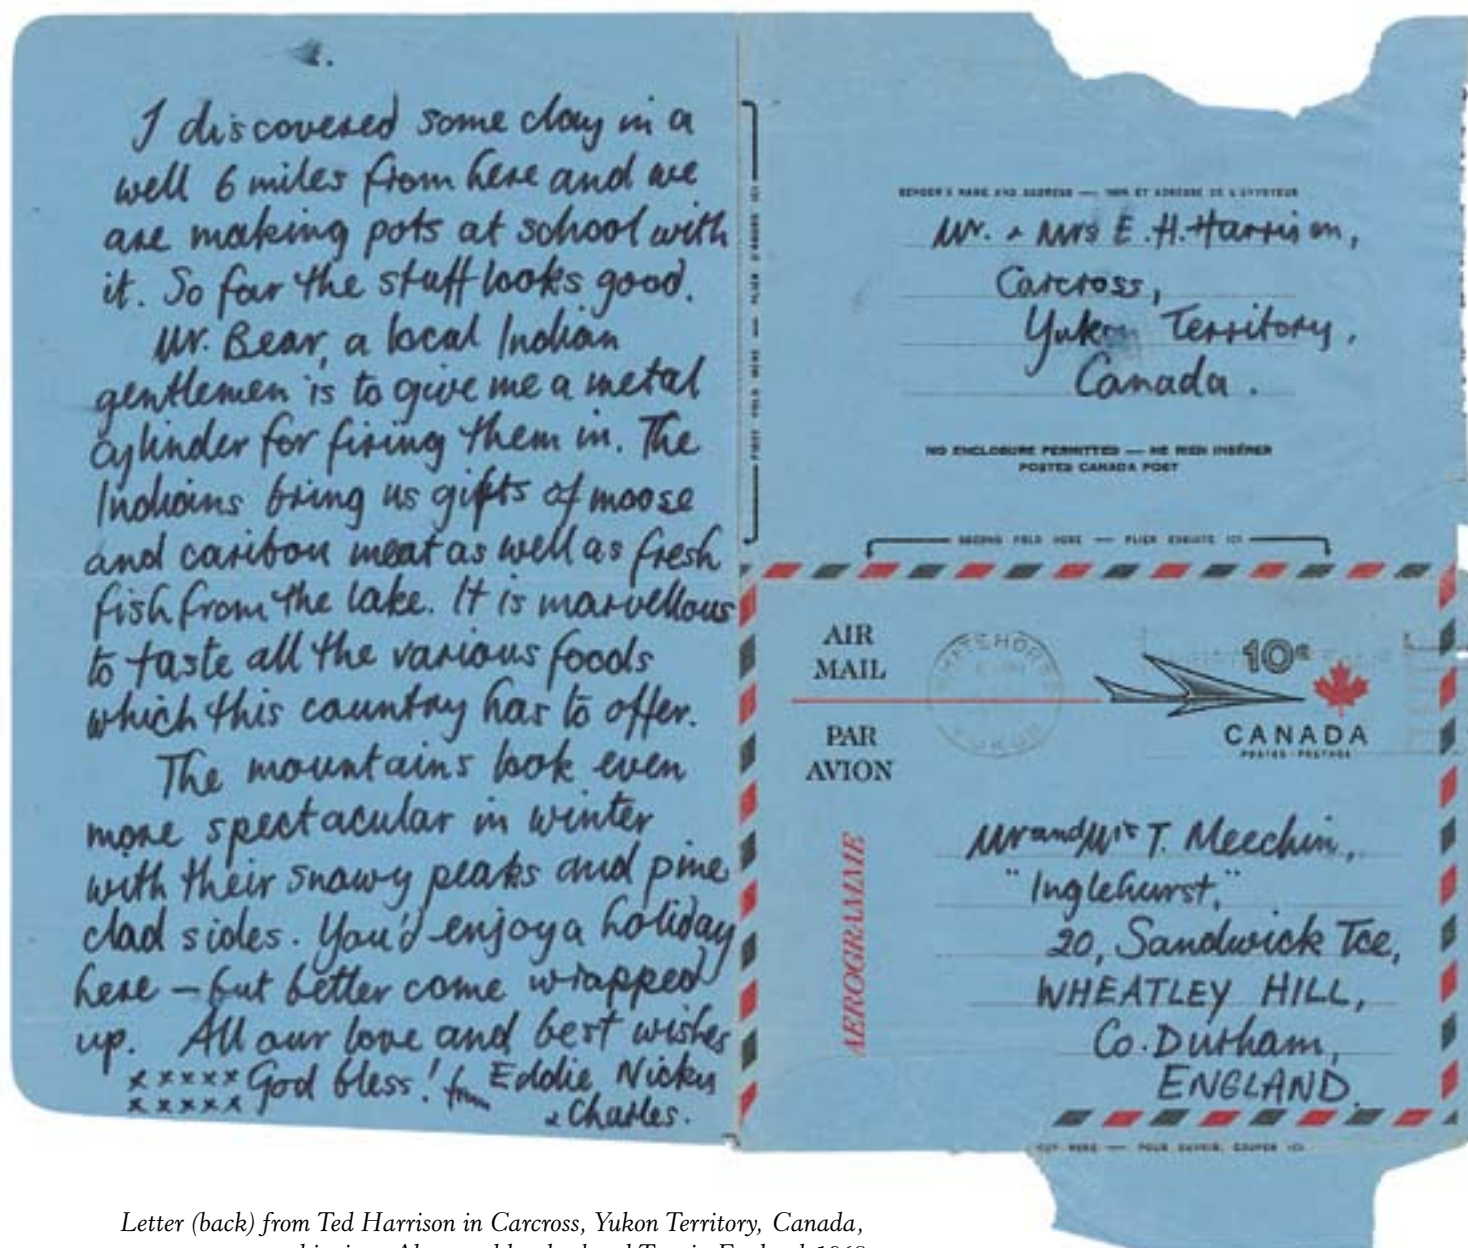 I discovered some clay in a
well 6 miles from here and we
are making pots at school with
it. So far the stuff looks good.
Mr. Bear, a local Indian
gentlemen is to give me a metal
cylinder for firing them in. The
Indians bring us gifts of moose
and caribou meat as well as fresh
fish from the lake. It is marvellous
to taste all the various foods
which this country has to offer.
The mountains look even
more spectacular in winter
with their snowy peaks and pine
clad sides. You'd enjoy a holiday
here – but better come wrapped
up. All our love and best wishes
xxxxx God bless! from Eddie Nicky
xxxxx & Charles.
FIRST FOLD HERE — PLIER D'ABORD ICI
SENDER'S NAME AND ADDRESS — NOM ET ADRESSE DE L'ENVOYEUR
Mr. & Mrs E.H. Harrison,
Carcross,
Yukon Territory,
Canada.
NO ENCLOSURE PERMITTED — NE RIEN INSÉRER
POSTES CANADA POST
SECOND FOLD HERE — PLIER ENSUITE ICI
AIR
MAIL
PAR
AVION
10¢
CANADA
POSTES - POSTAGE
AEROGRAMME
Mr and Mrs T. Meechin,
"Inglehurst,"
20, Sandwick Tce,
WHEATLEY HILL,
Co. Durham,
ENGLAND.
CUT HERE — POUR OUVRIR, COUPER ICI
Letter (back) from Ted Harrison in Carcross, Yukon Territory, Canada,